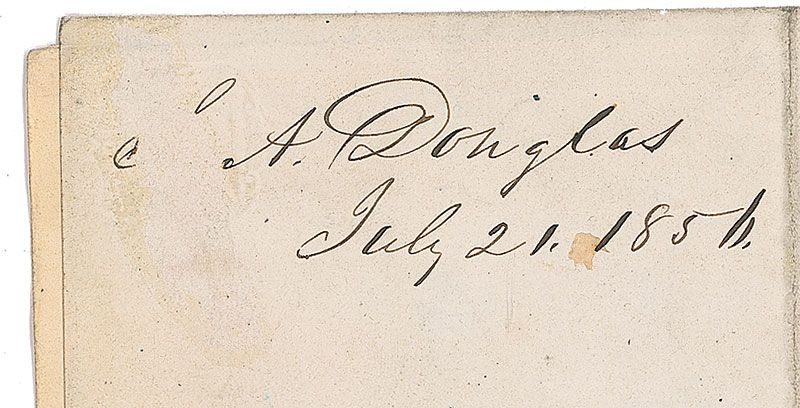 A. Douglas
July 21. 185